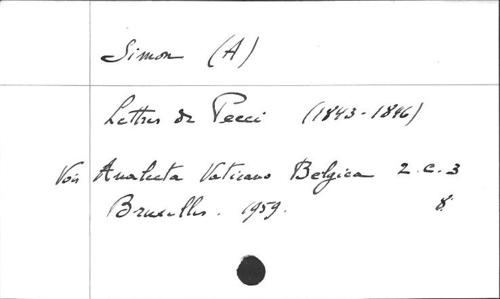 Simon (A)
Lettres de Pecci (1843-1846)
Voir Analecta Vaticano Belgica 2.C.3
Bruxelles. 1959. 8.